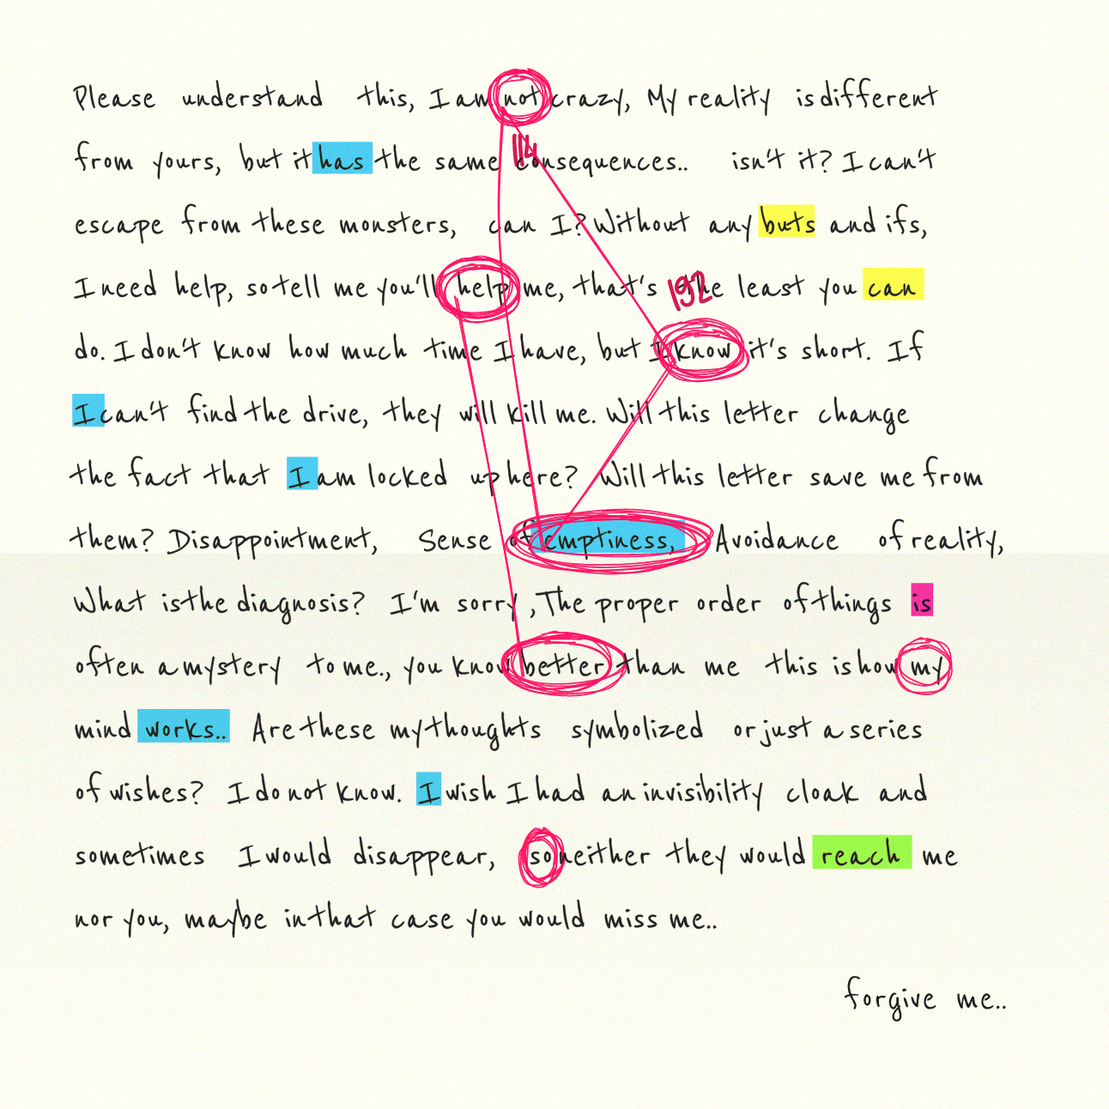 Please understand this, I am not crazy, My reality is different
114
from yours, but it has the same consequences.. isn't it? I can't
escape from these monsters, can I? Without any buts and ifs,
I need help, so tell me you'll help me, that's the least you can
192
do. I don't know how much time I have, but I know it's short. If
I can't find the drive, they will kill me. Will this letter change
the fact that I am locked up here? Will this letter save me from
them? Disappointment, Sense of emptiness, Avoidance of reality,
What is the diagnosis? I'm sorry, The proper order of things is
often a mystery to me., you know better than me this is how my
mind works.. Are these my thoughts symbolized or just a series
of wishes? I do not know. I wish I had an invisibility cloak and
sometimes I would disappear, so neither they would reach me
nor you, maybe in that case you would miss me..
forgive me..